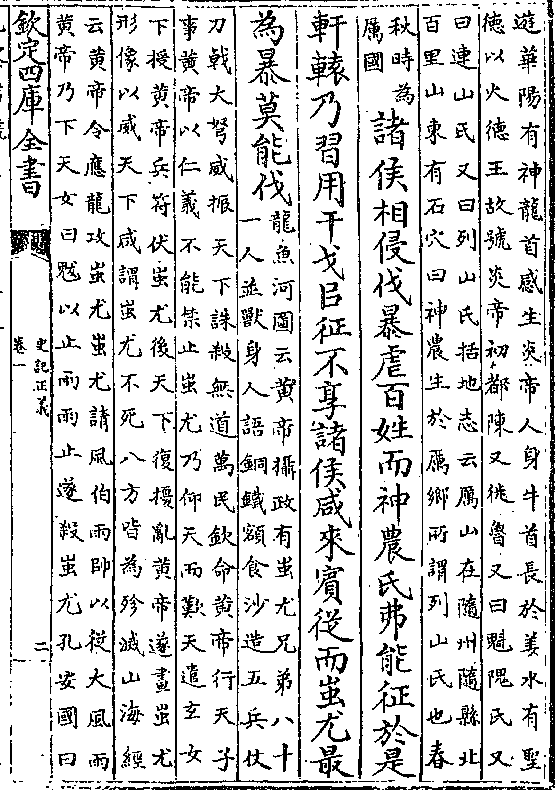 遊華陽有神龍首感生炎帝人身牛首長於姜水有聖
德以火德王故號炎帝初都陳又徙魯又曰魁隗氏又
曰連山氏又曰列山氏括地志云厲山在隨州隨縣北
百里山東有石穴曰神農生於厲鄉所謂列山氏也春
秋時為
厲國
諸侯相侵伐暴虐百姓而神農氏弗能征於是
軒轅乃習用干戈㠯征不享諸侯咸來賓從而蚩尤最
為暴莫能伐
龍魚河圖云黃帝攝政有蚩尤兄弟八十
一人並獸身人語銅鐵額食沙造五兵仗
刀戟大弩威振天下誅殺無道萬民欽命黃帝行天子
事黃帝以仁義不能禁止蚩尤乃仰天而歎天遣玄女
下授黃帝兵符伏蚩尤後天下復擾亂黃帝遂畫蚩尤
形像以威天下咸謂蚩尤不死八方皆為殄滅山海經
云黃帝令應龍攻蚩尤蚩尤請風伯雨師以從大風雨
黃帝乃下天女曰魃以止雨雨止遂殺蚩尤孔安國曰
欽定四庫全書
史記正義
卷一
二